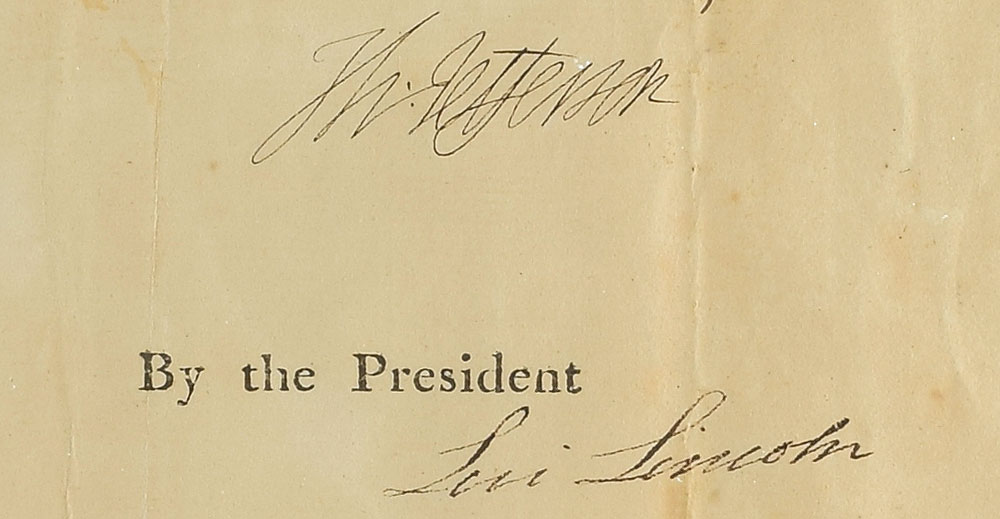 Th: Jefferson
By the President
Levi Lincoln